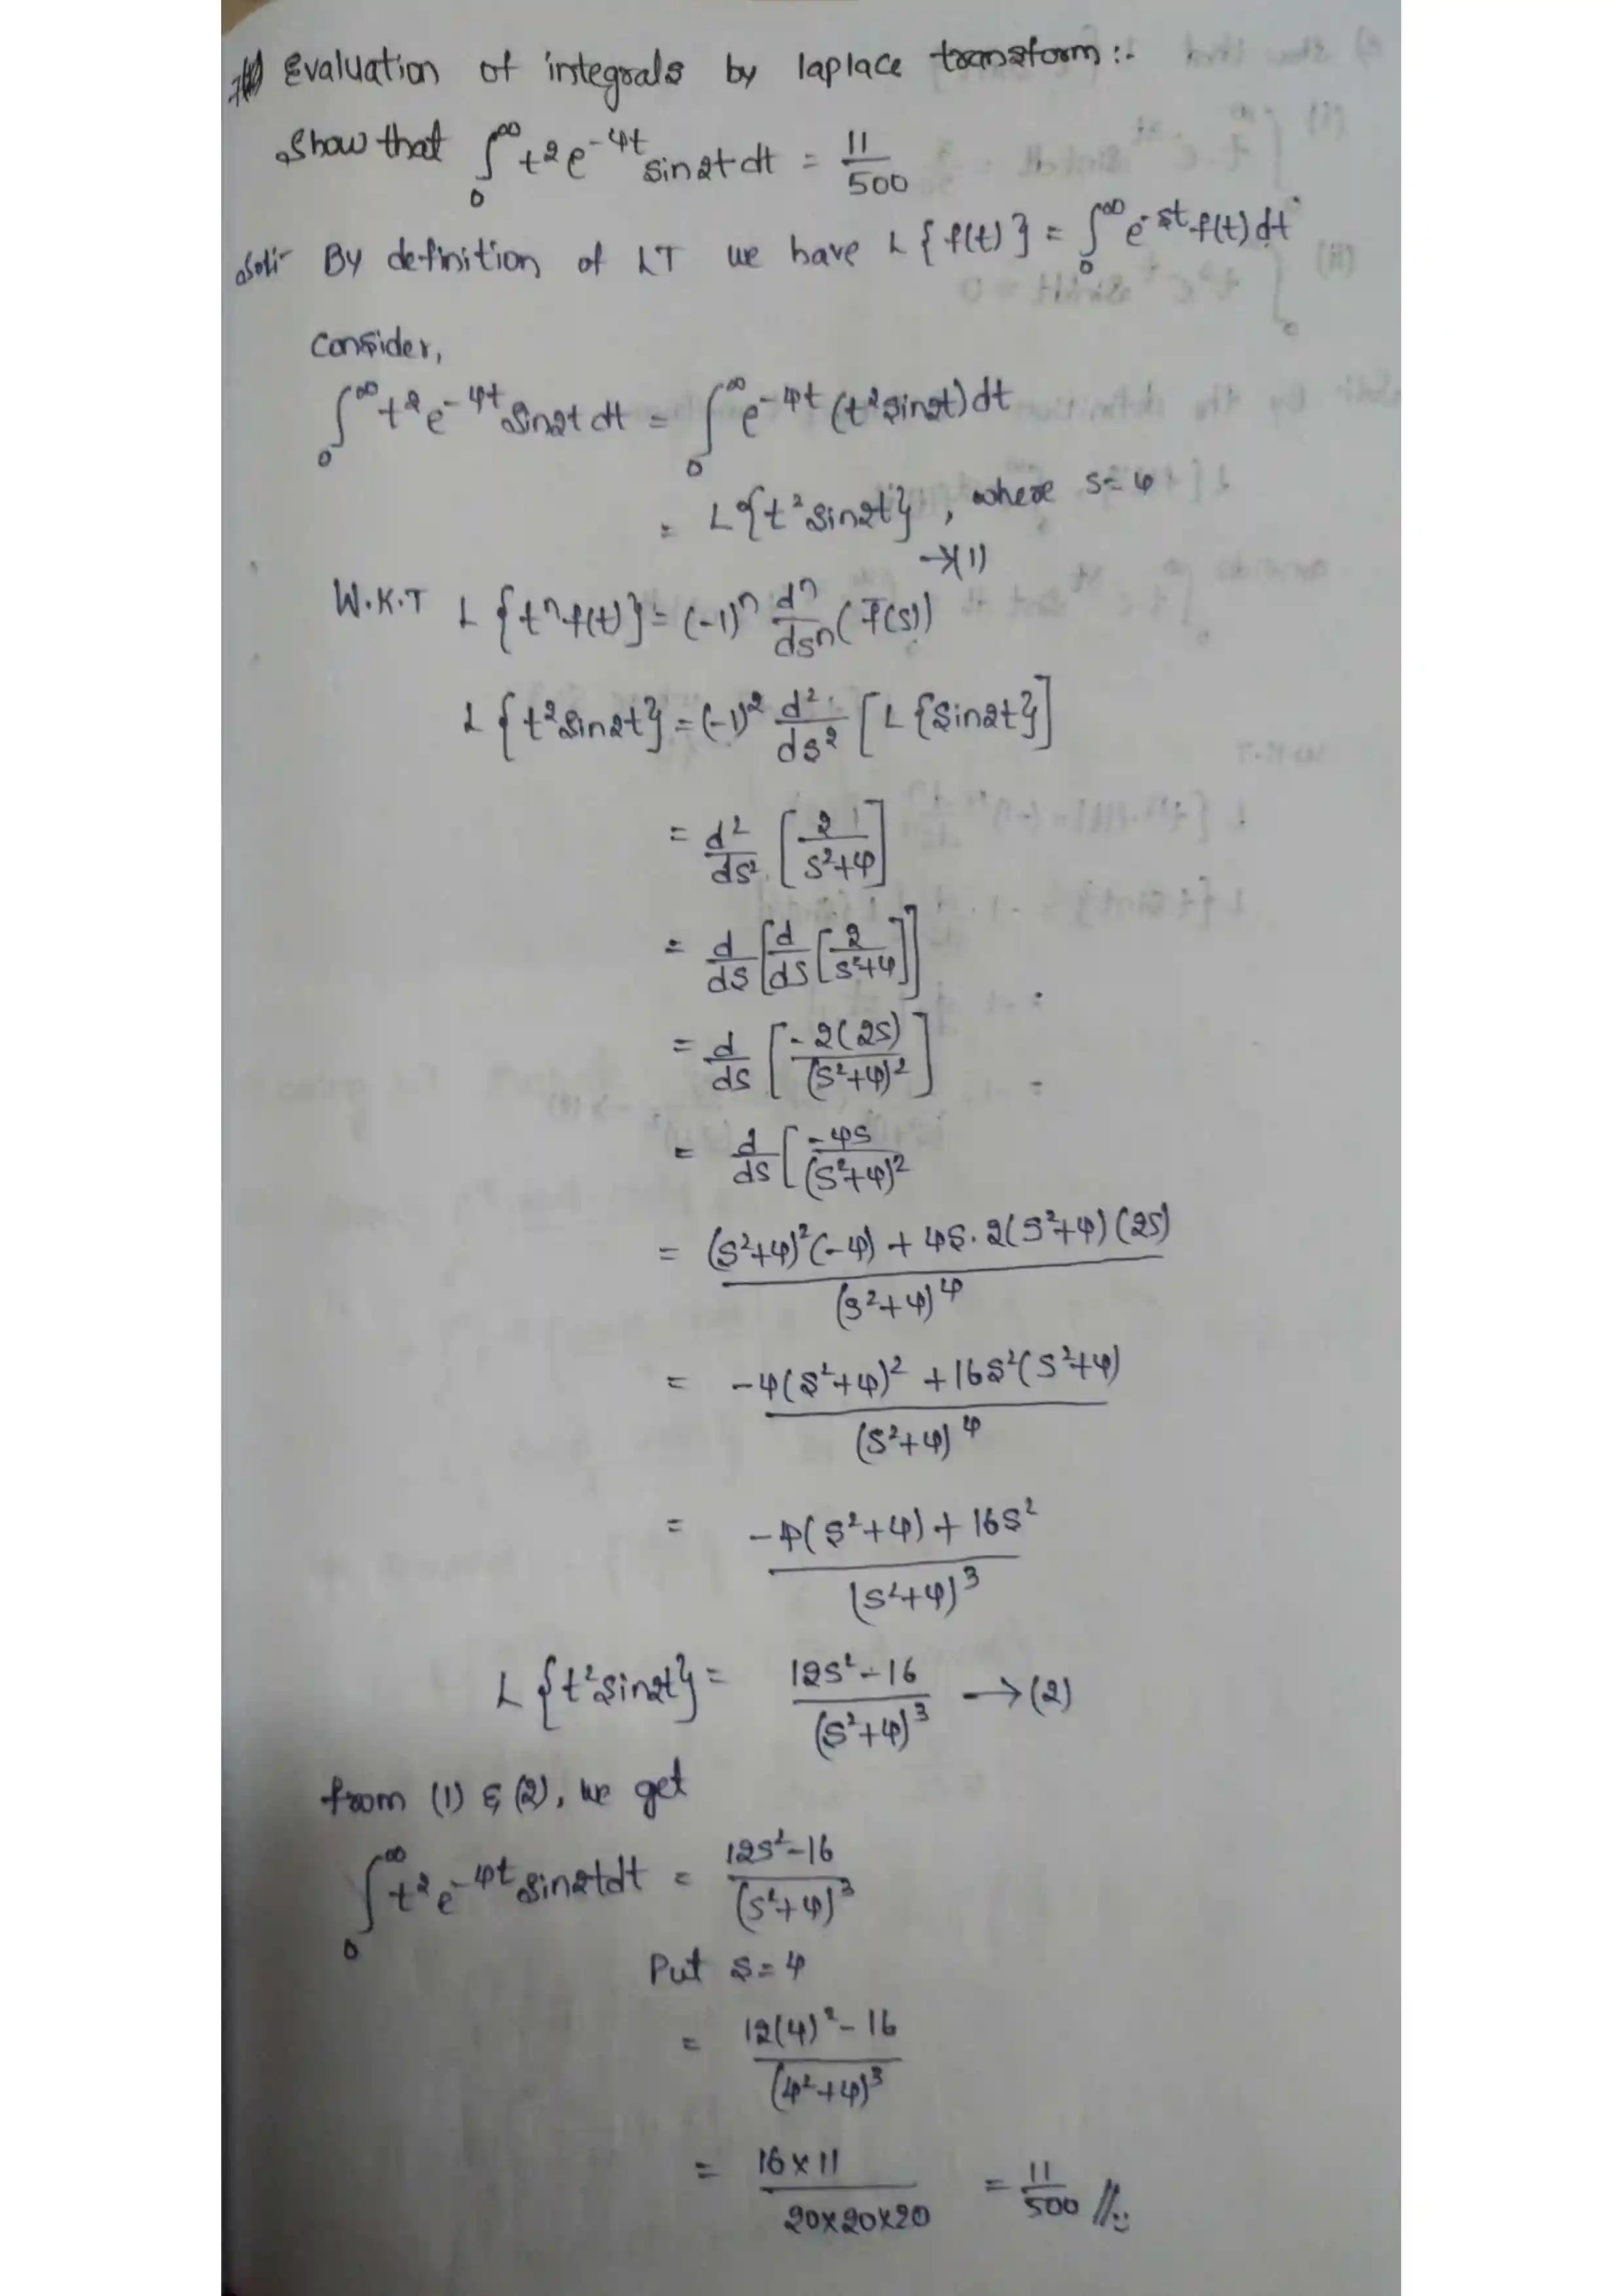 Evaluation of integrals by laplace transform :-
Show that ∫₀^∞ t² e^{-4t} sin2t dt = 11/500
Sol:- By definition of LT we have L{f(t)} = ∫₀^∞ e^{-st} f(t) dt
Consider,
∫₀^∞ t² e^{-4t} sin2t dt = ∫₀^∞ e^{-4t} (t² sin2t) dt
= L{t² sin2t}, where s=4
→(1)
W.K.T L{tⁿ f(t)} = (-1)ⁿ dⁿ/dsⁿ (f̄(s))
L{t² sin2t} = (-1)² d²/ds² [L{sin2t}]
= d²/ds² [2/(s²+4)]
= d/ds [d/ds [2/(s²+4)]]
= d/ds [-2(2s)/(s²+4)²]
= d/ds [-4s/(s²+4)²
= (s²+4)²(-4) + 4s.2(s²+4)(2s) / (s²+4)⁴
= -4(s²+4)² + 16s²(s²+4) / (s²+4)⁴
= -4(s²+4) + 16s² / (s²+4)³
L{t² sin2t} = 12s²-16 / (s²+4)³ → (2)
from (1) & (2), we get
∫₀^∞ t² e^{-4t} sin2t dt = 12s²-16 / (s²+4)³
Put s=4
= 12(4)²-16 / (4²+4)³
= 16×11 / 20×20×20 = 11/500 //